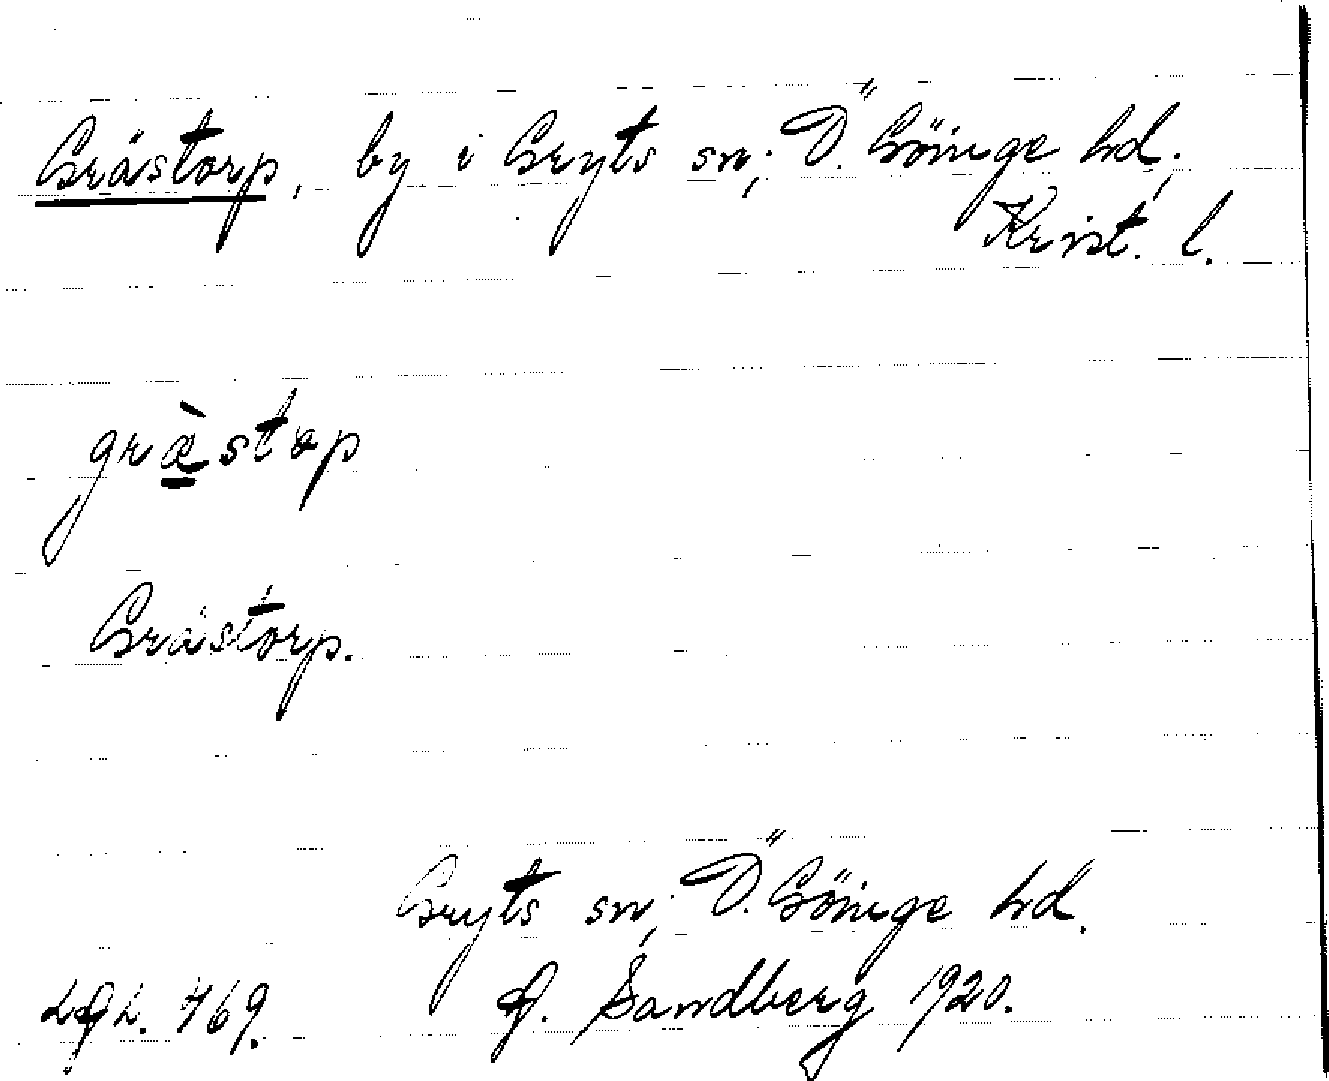 Grästorp, by i Gryts sn; Ö. Göinge hd;
Krist. l.
græ̀stɒp
Grästorp.
Gryts sn; Ö. Göinge hd.
Sandberg 1920.